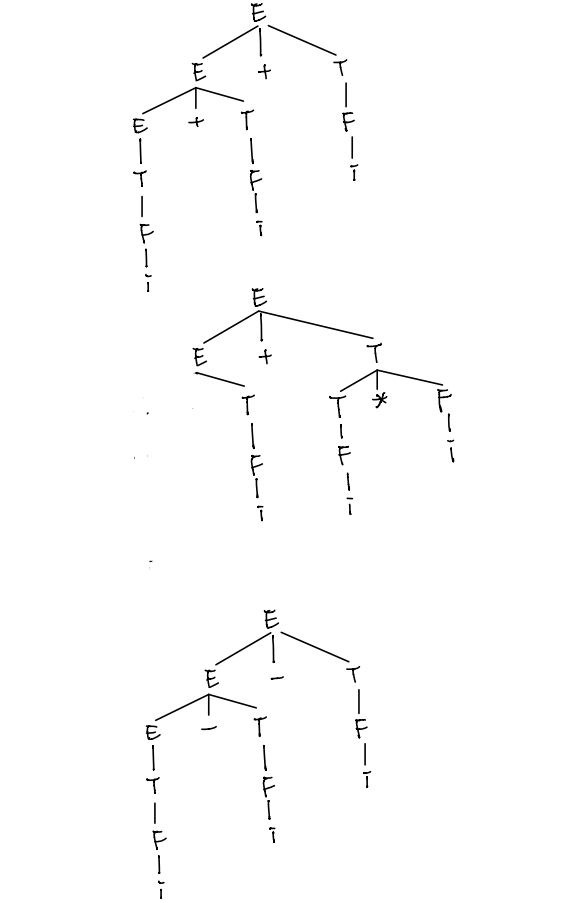 E
E + T
E + T F
T F i
F i
i
E
E + T
T T * F
F F i
i i
E
E - T
E - T F
T F i
F i
i